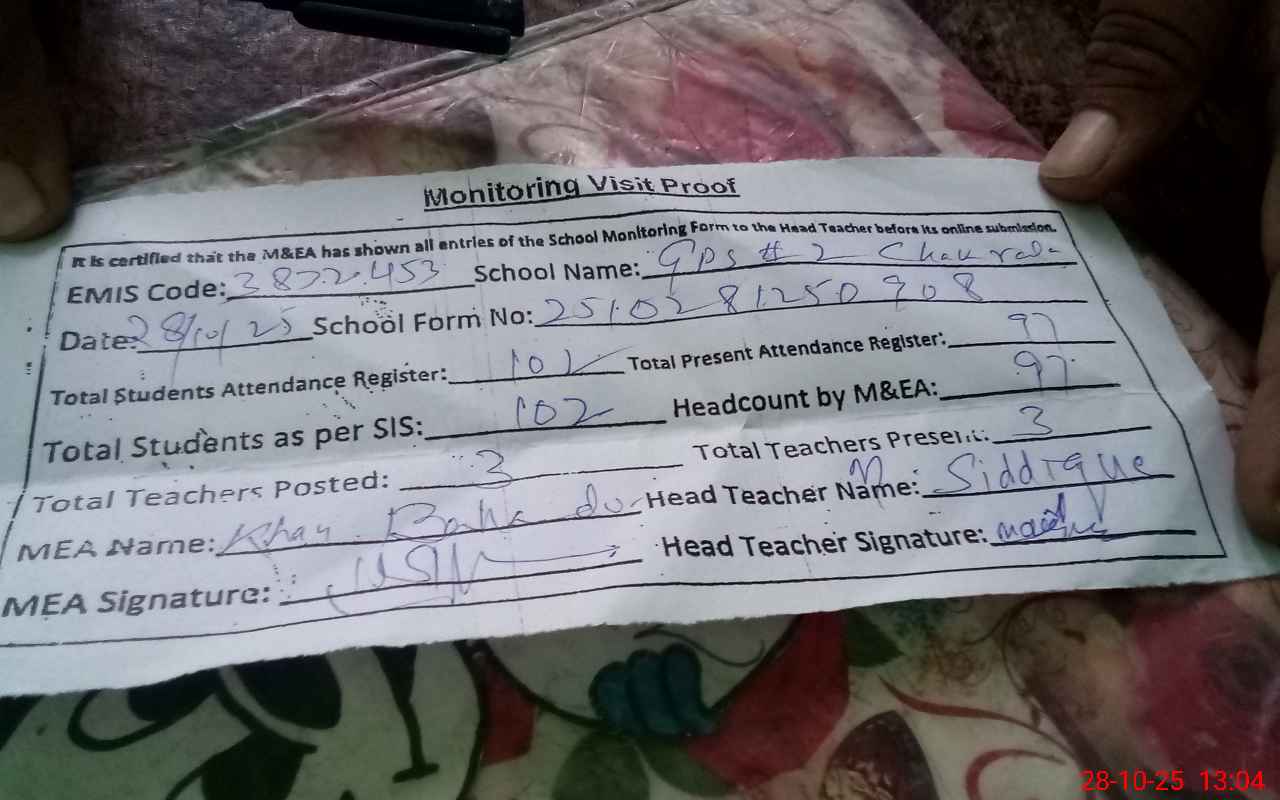 Monitoring Visit Proof
It is certified that the M&EA has shown all entries of the School Monitoring Form to the Head Teacher before its online submission.
EMIS Code: 38722453 School Name: GPS # 2 Chakrala
Date: 28/10/25 School Form No: 2510281250908
Total Students Attendance Register: 102 Total Present Attendance Register: 97
Total Students as per SIS: 102 Headcount by M&EA: 97
Total Teachers Posted: 3 Total Teachers Present: 3
MEA Name: Khan Bahadur Head Teacher Name: M Siddique
MEA Signature: Head Teacher Signature:
28-10-25 13:04